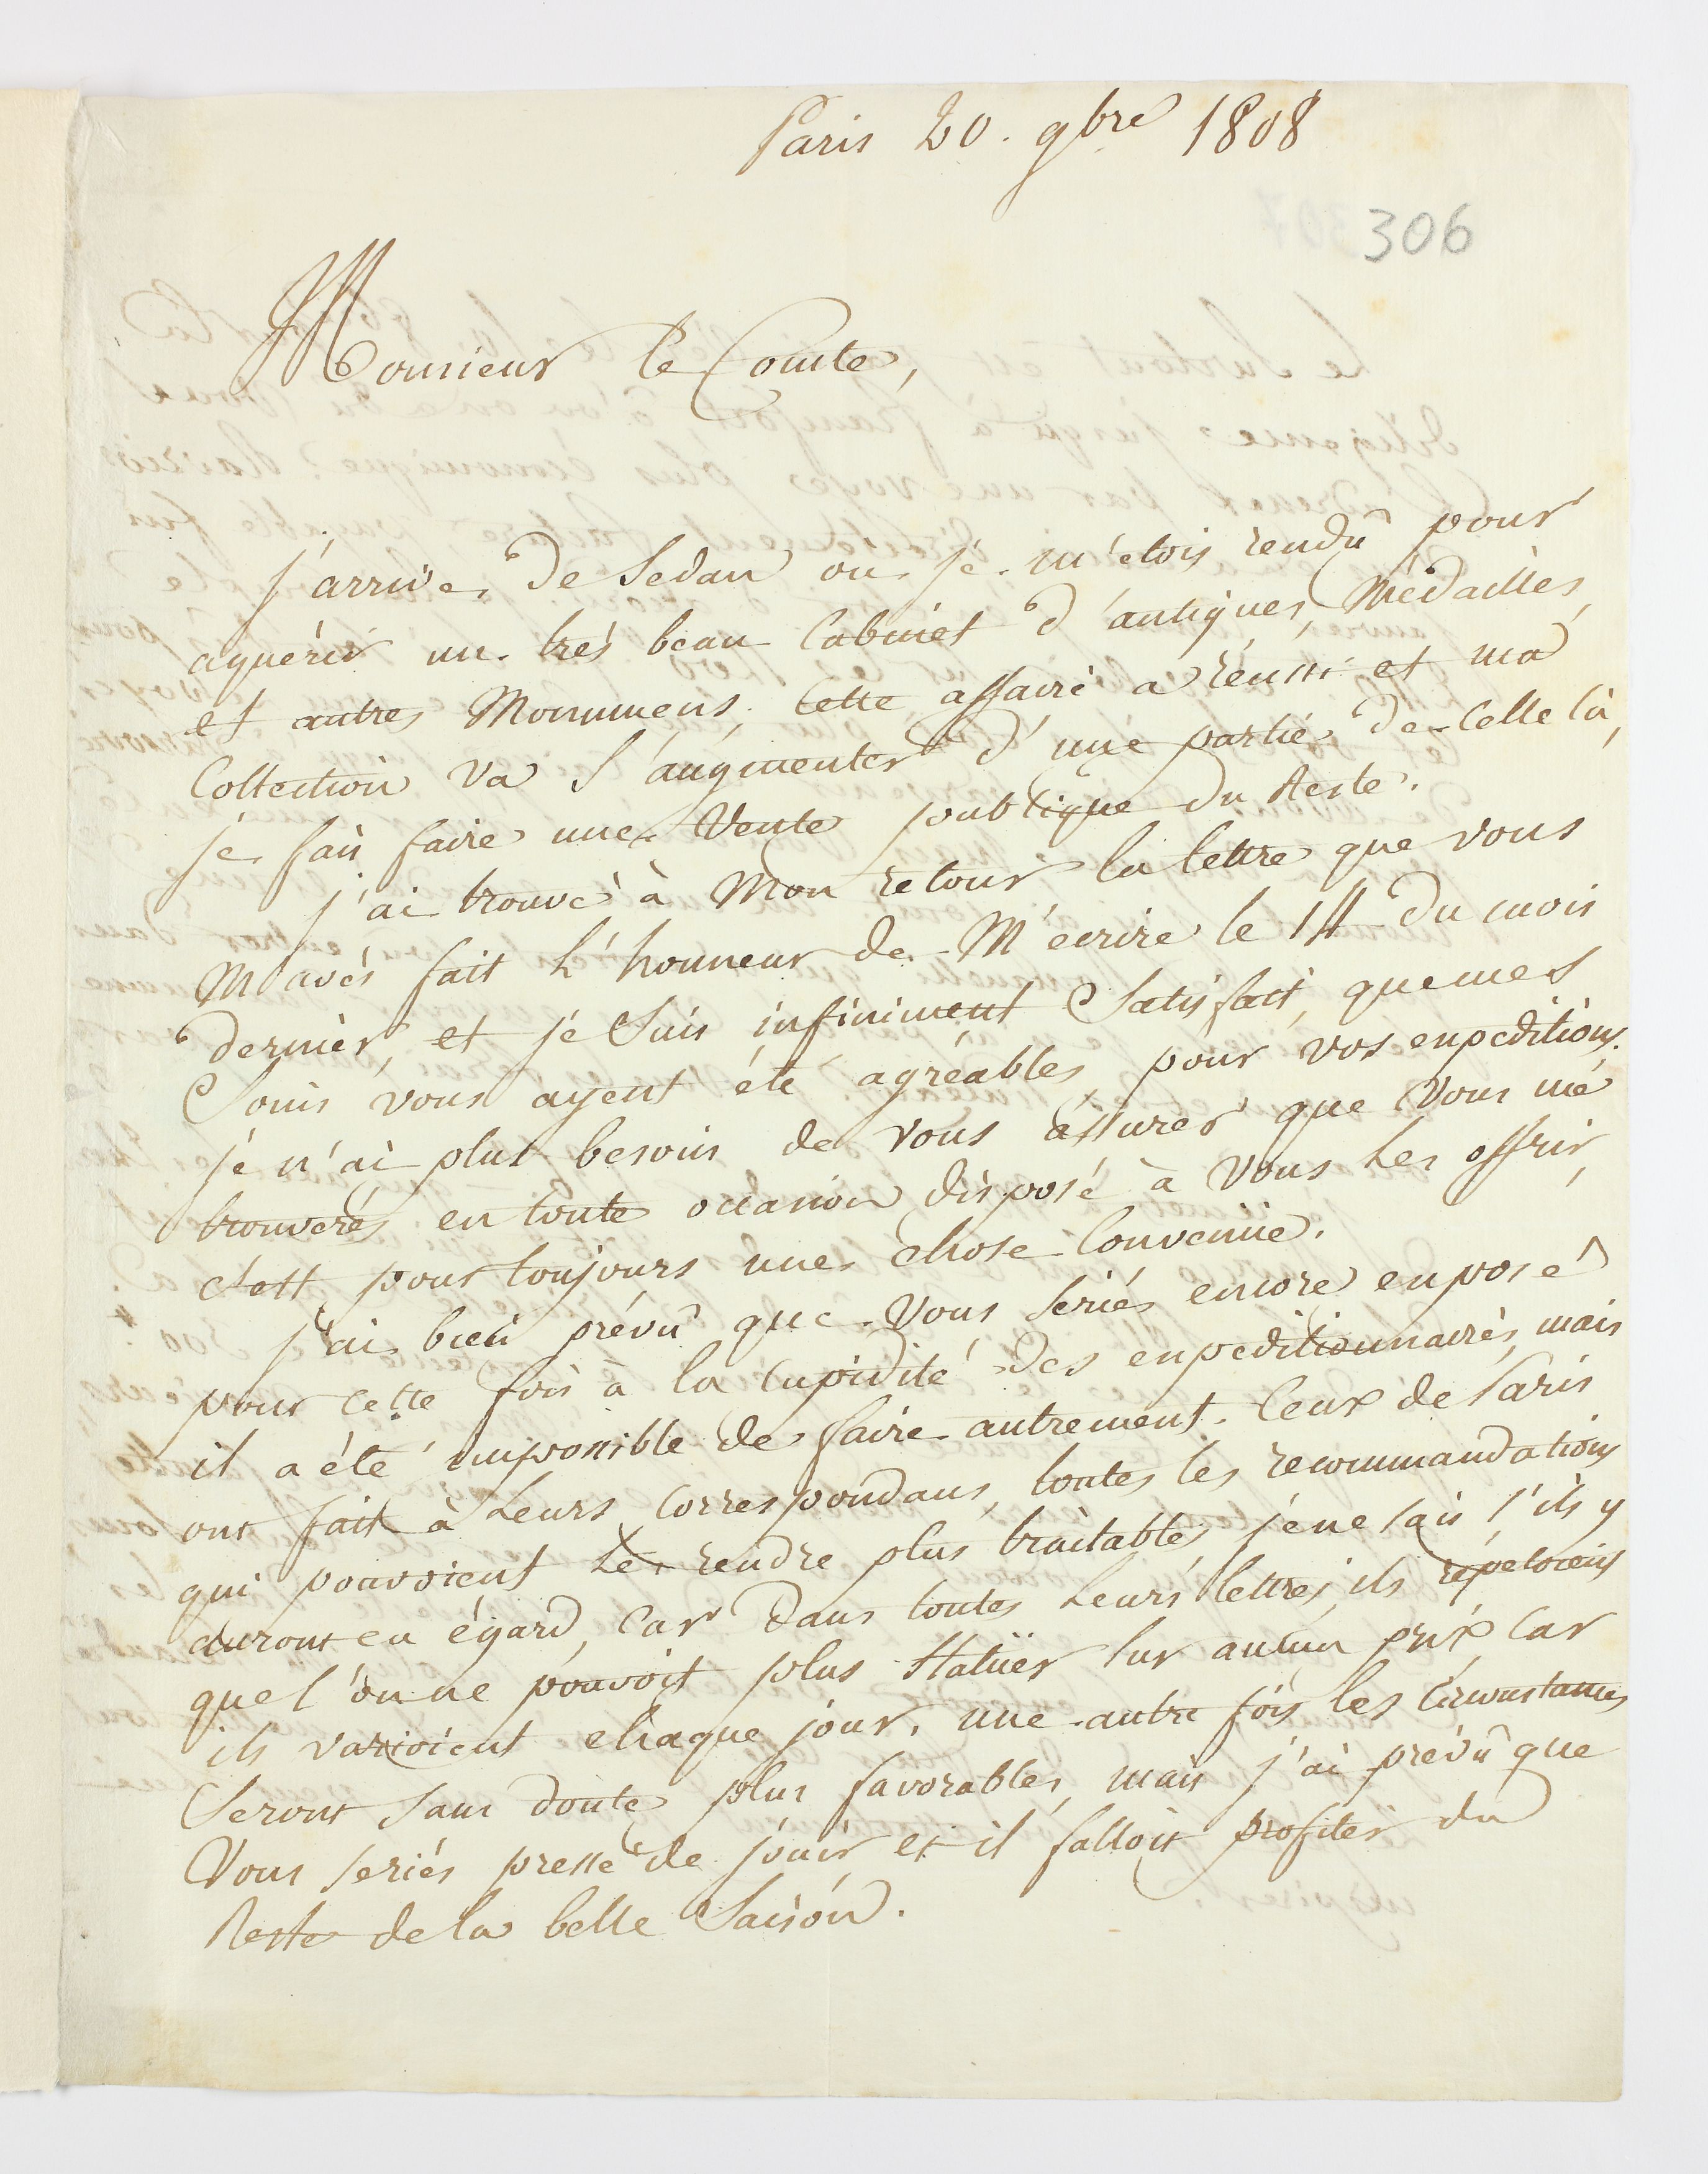 Paris 20. 9bre 1808
306
Monsieur le Comte,
j'arrive de Sedan ou je m'etois rendu pour
aquérir un très beau Cabinet d'antiques, Médailles,
et autres Monumens. Cette affaire a réussi et ma
Collection va s'augmenter d'une partie de celle là,
je fais faire une Vente publique du Reste.
j'ai trouvé à Mon retour la lettre que vous
M'avés fait L'honneur de M'ecrire le 14 du mois
dernier, et je Suis infiniment Satisfait, que mes
Soins vous ayent été agréables, pour vos expeditions.
je n'ai plus besoin de vous assurer que Vous me
trouverés en toute occasion disposé à Vous Les offrir,
c'est pour toujours une chose Convenüe.
j'ai bien prévû que Vous seriés encore exposé
pour cette fois à la Cupidité des expeditionnaires, mais
il a été impossible de faire autrement. Ceux de Paris
ont fait à Leurs Correspondans, toutes les recommandations
qui pouvoient Les rendre plus traitables je ne sais s'ils y
auront eu égard, Car dans toutes Leurs lettres ils répetoient
que l'on ne pouvoit plus Statüer sur aucun prix Car
ils varioient chaque jour. une autre fois les Circonstances
Seront sans doute plus favorables, mais j'ai prévû que
Vous seriés pressé de jouir et il falloit profiter du
Reste de la belle Saison.